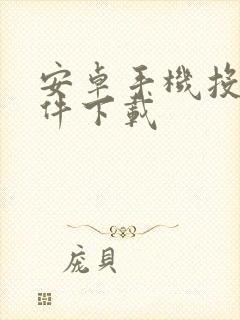 安卓手機投
件下載
庞貝